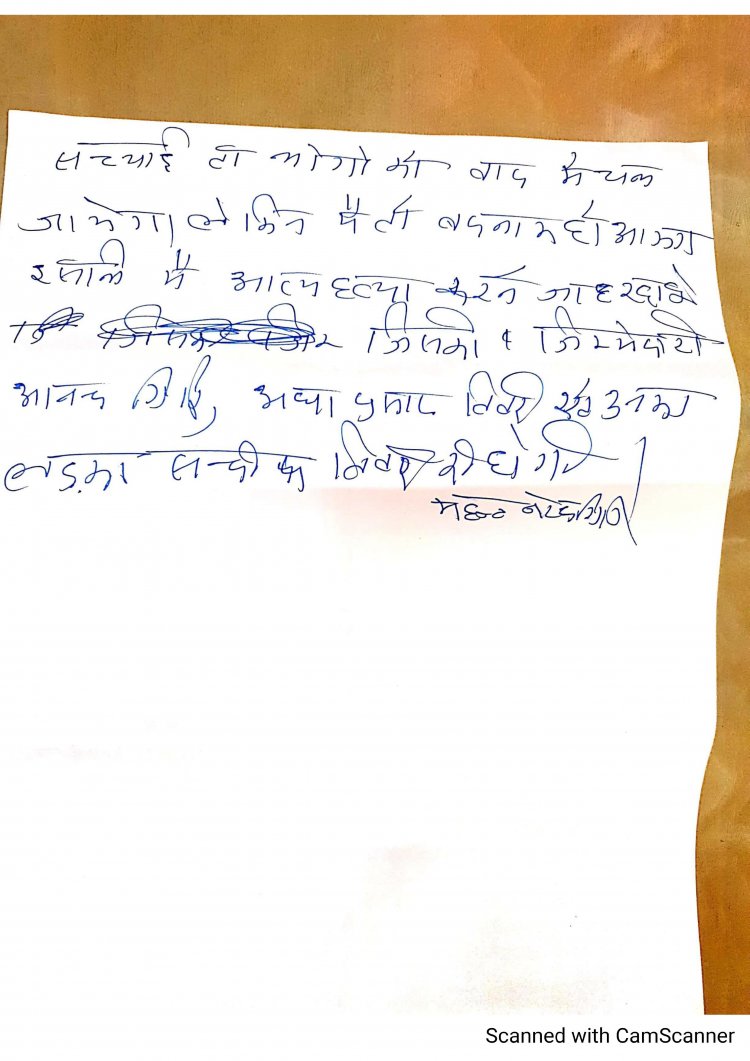 सच्चाई तो लोगो को बाद मे चल
जायेगा। लेकिन मै तो बदनाम हो जाऊगा
इसलिए मै आत्महत्या करने जा रहा हूँ
जिसकी जिम्मेदारी
आनन्द गिरि, अद्या प्रसाद तिवारी एवं उनका
लड़का सन्दीप तिवारी की होगी
महन्त नरेन्द्र गिरि
Scanned with CamScanner